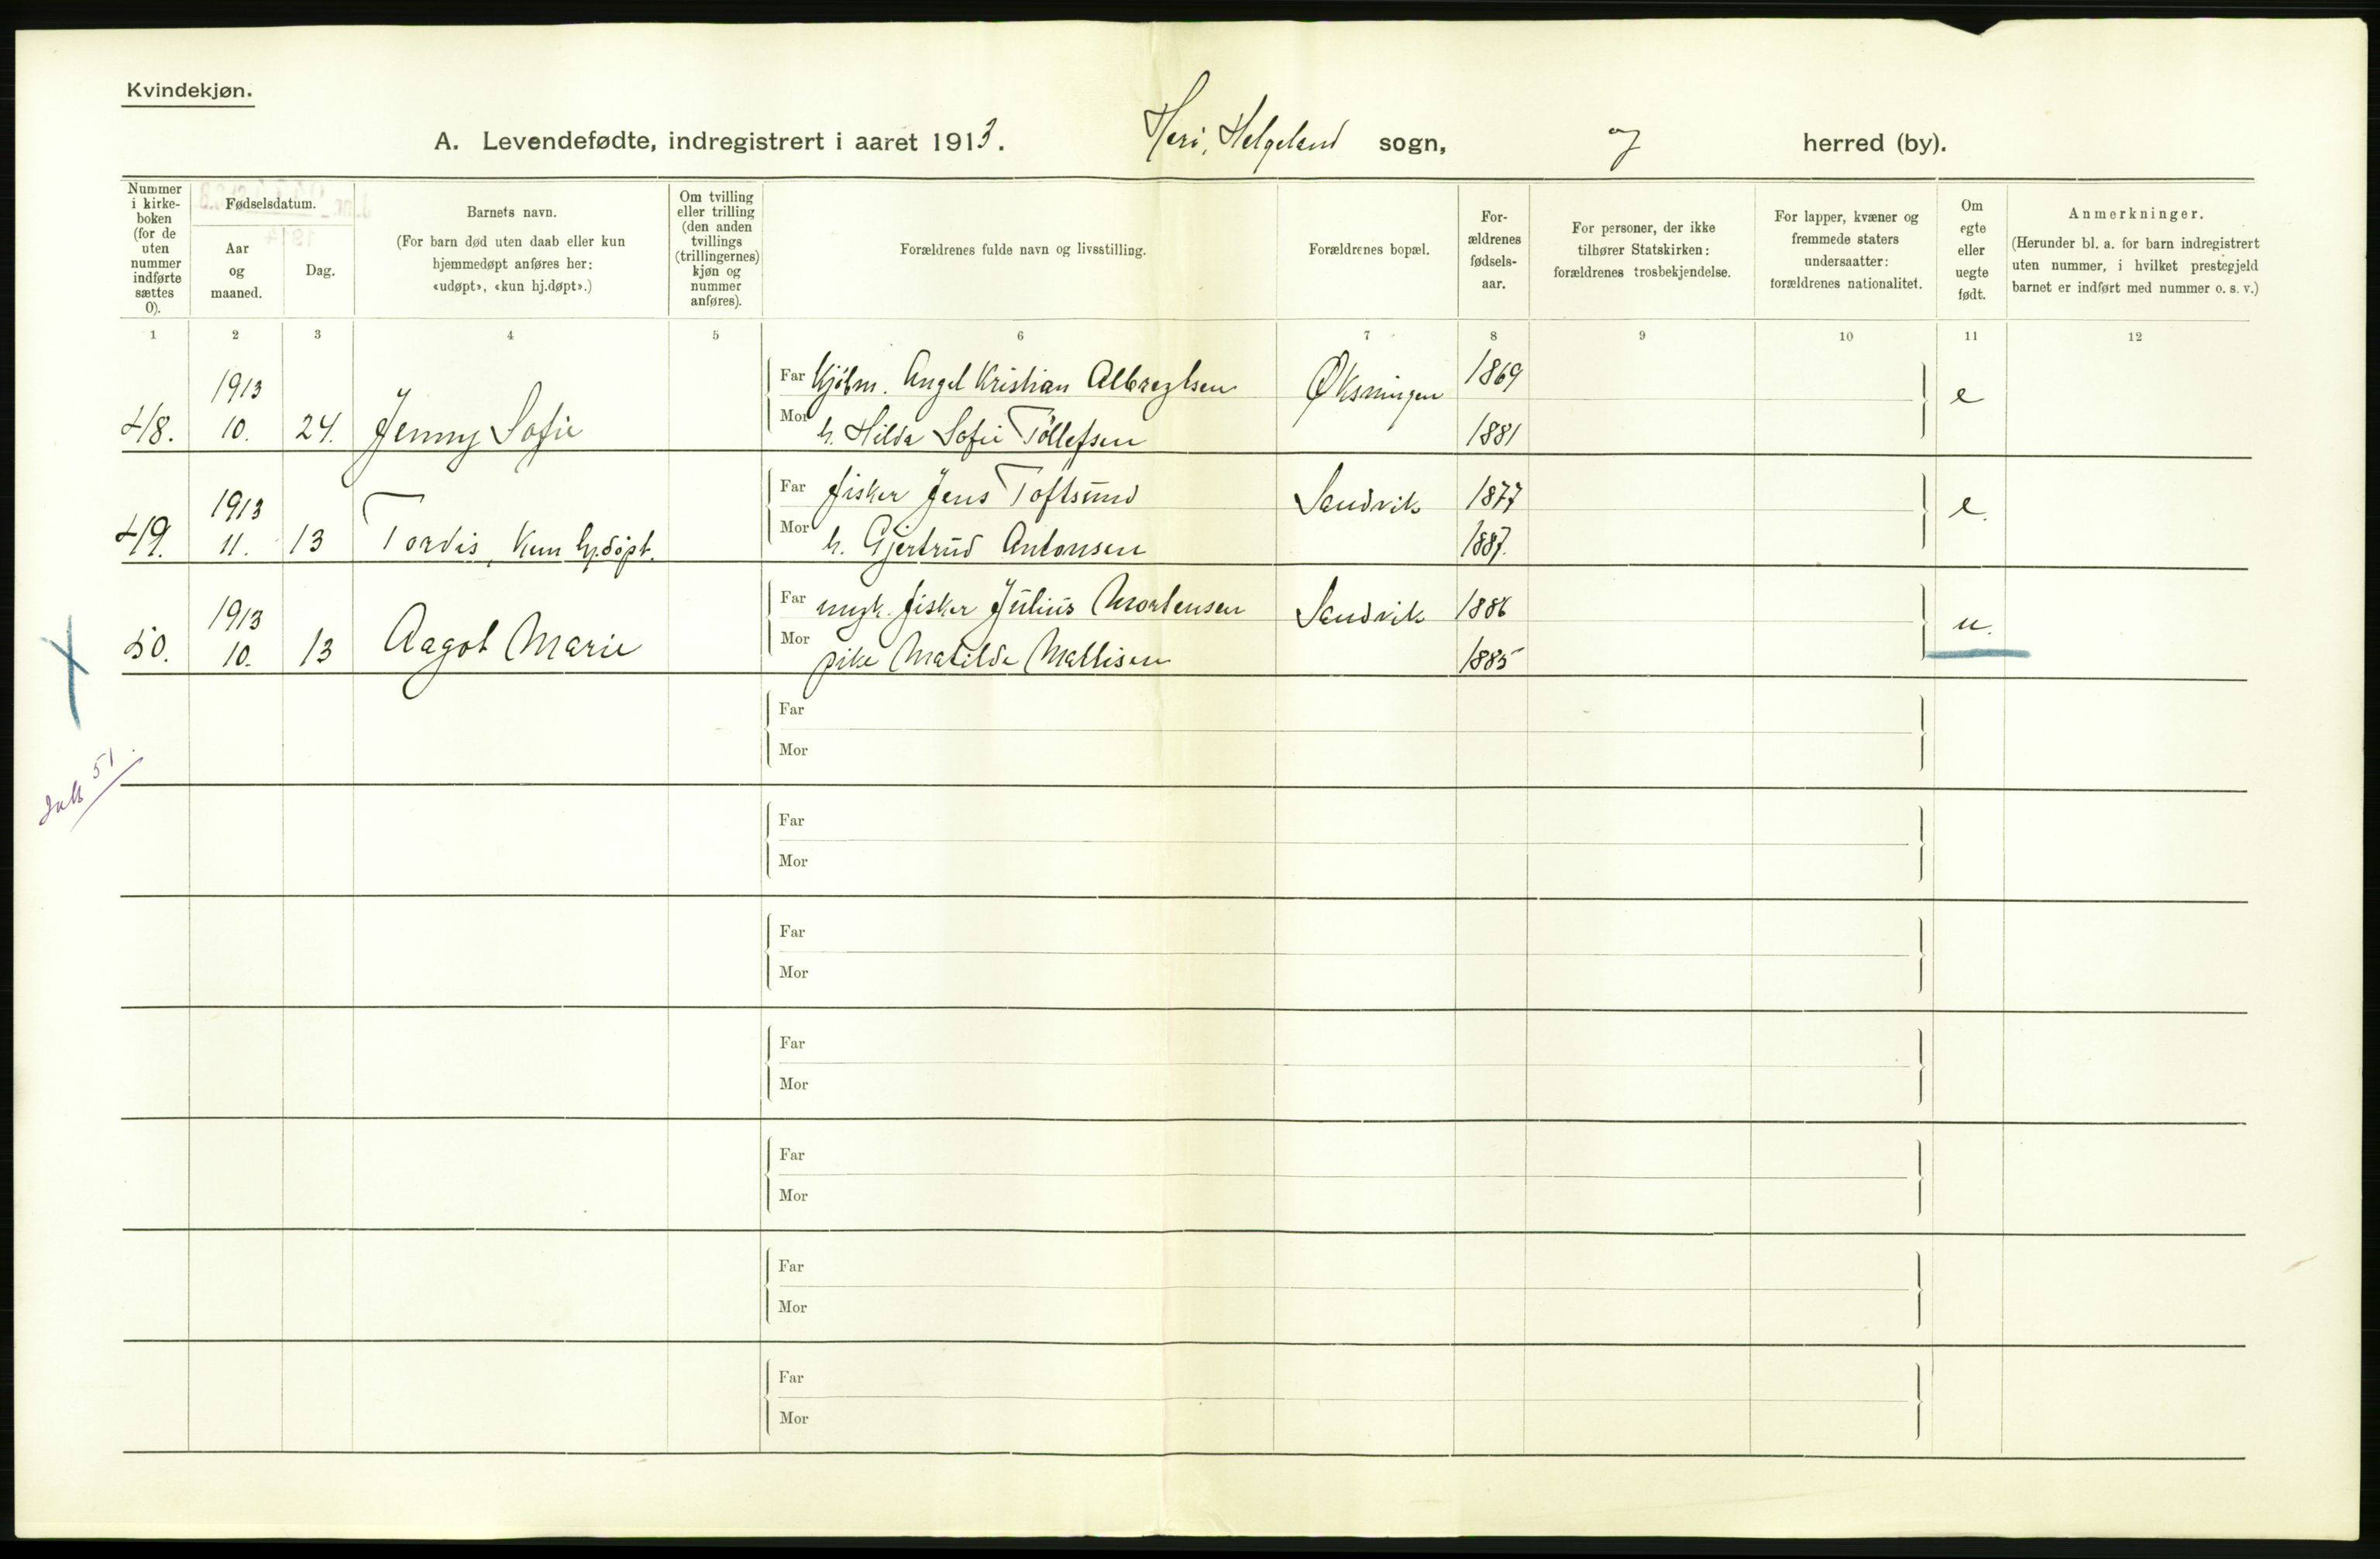 Kvindekjøn.
A. Levendefødte, indregistrert i aaret 1913. Herö, Helgeland sogn, og herred (by).
Nummer i kirke-boken (for de uten nummer indførte sættes 0).
Fødselsdatum.
Aar og maaned.
Dag.
Barnets navn.
(For barn død uten daab eller kun hjemmedøpt anføres her: «udøpt», «kun hj.døpt».)
Om tvilling eller trilling (den anden tvillings (trillingernes) kjøn og nummer anføres).
Forældrenes fulde navn og livsstilling.
Forældrenes bopæl.
For-ældrenes fødsels-aar.
For personer, der ikke tilhører Statskirken: forældrenes trosbekjendelse.
For lapper, kvæner og fremmede staters undersaatter: forældrenes nationalitet.
Om egte eller uegte født.
Anmerkninger.
(Herunder bl. a. for barn indregistrert uten nummer, i hvilket prestegjeld barnet er indført med nummer o. s. v.)
1 2 3 4 5 6 7 8 9 10 11 12
48. 1913 10. 24. Jenny Sofie
Far Kjøbm. Angel Kristian Albregtsen Øksningen 1869 e
Mor h. Hilda Sofie Töllefsen 1881
49. 1913 11. 13 Tordis, kun hj.döpt.
Far fisker Jens Toftsund Sandvik 1877 e.
Mor h. Gjertrud Antonsen 1887.
50. 1913 10. 13 Aagot Marie
Far ungk. fisker Julius Mortensen Sandvik 1886 u.
Mor pike Matilde Mathisen 1885
Far
Mor
51
Far
Mor
Far
Mor
Far
Mor
Far
Mor
Far
Mor
Far
Mor